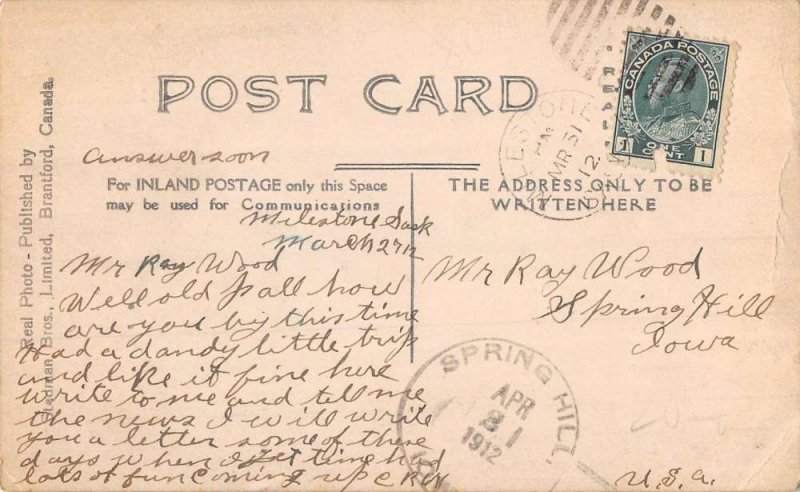 POST CARD
CANADA POSTAGE
1 ONE CENT 1
MILESTONE
PM
MR 31
12
answer soon
For INLAND POSTAGE only this Space
may be used for Communications
THE ADDRESS ONLY TO BE
WRITTEN HERE
Real Photo - Published by
Stedman Bros., Limited, Brantford, Canada.
Milestone Sask
March 27 12
Mr Ray Wood
Well old pall how
are you by this time
Had a dandy little trip
and like it fine here
write to me and tell me
the news I will write
you a letter some of these
days when I get time had
lots of fun coming up C R W
Mr Ray Wood
Spring Hill
Iowa
U.S.A.
SPRING HILL
APR
1912